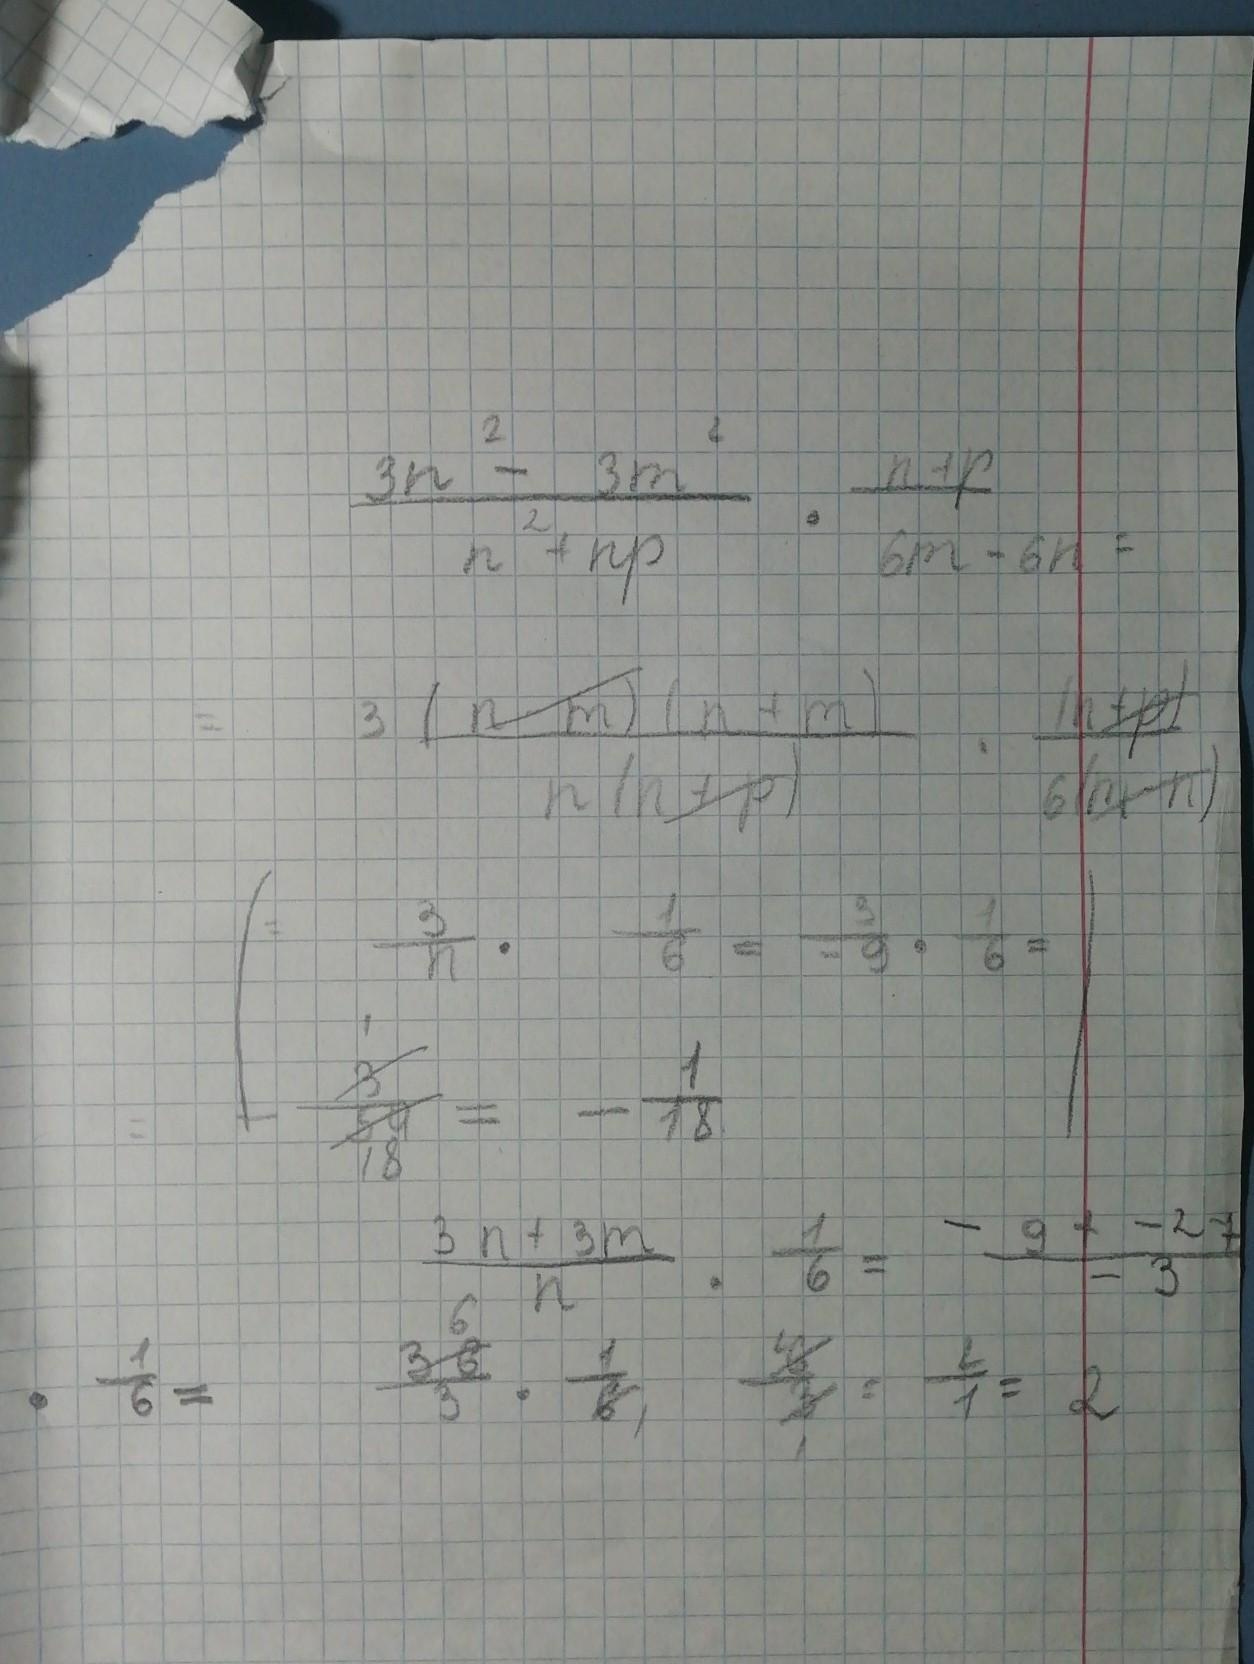 (3n² - 3m²)/(n² + np) · (n+p)/(6m - 6n) =
= 3(n - m)(n + m)/n(n + p) · (n+p)/6(m - n)
(= 3/n · 1/6 = 3/-9 · 1/6 =
= - 3/54 1 18 = - 1/18)
(3n + 3m)/n · 1/6 = (- 9 + -27)/-3
· 1/6 = 36/3 6 · 1/6, = 2/1 = 2